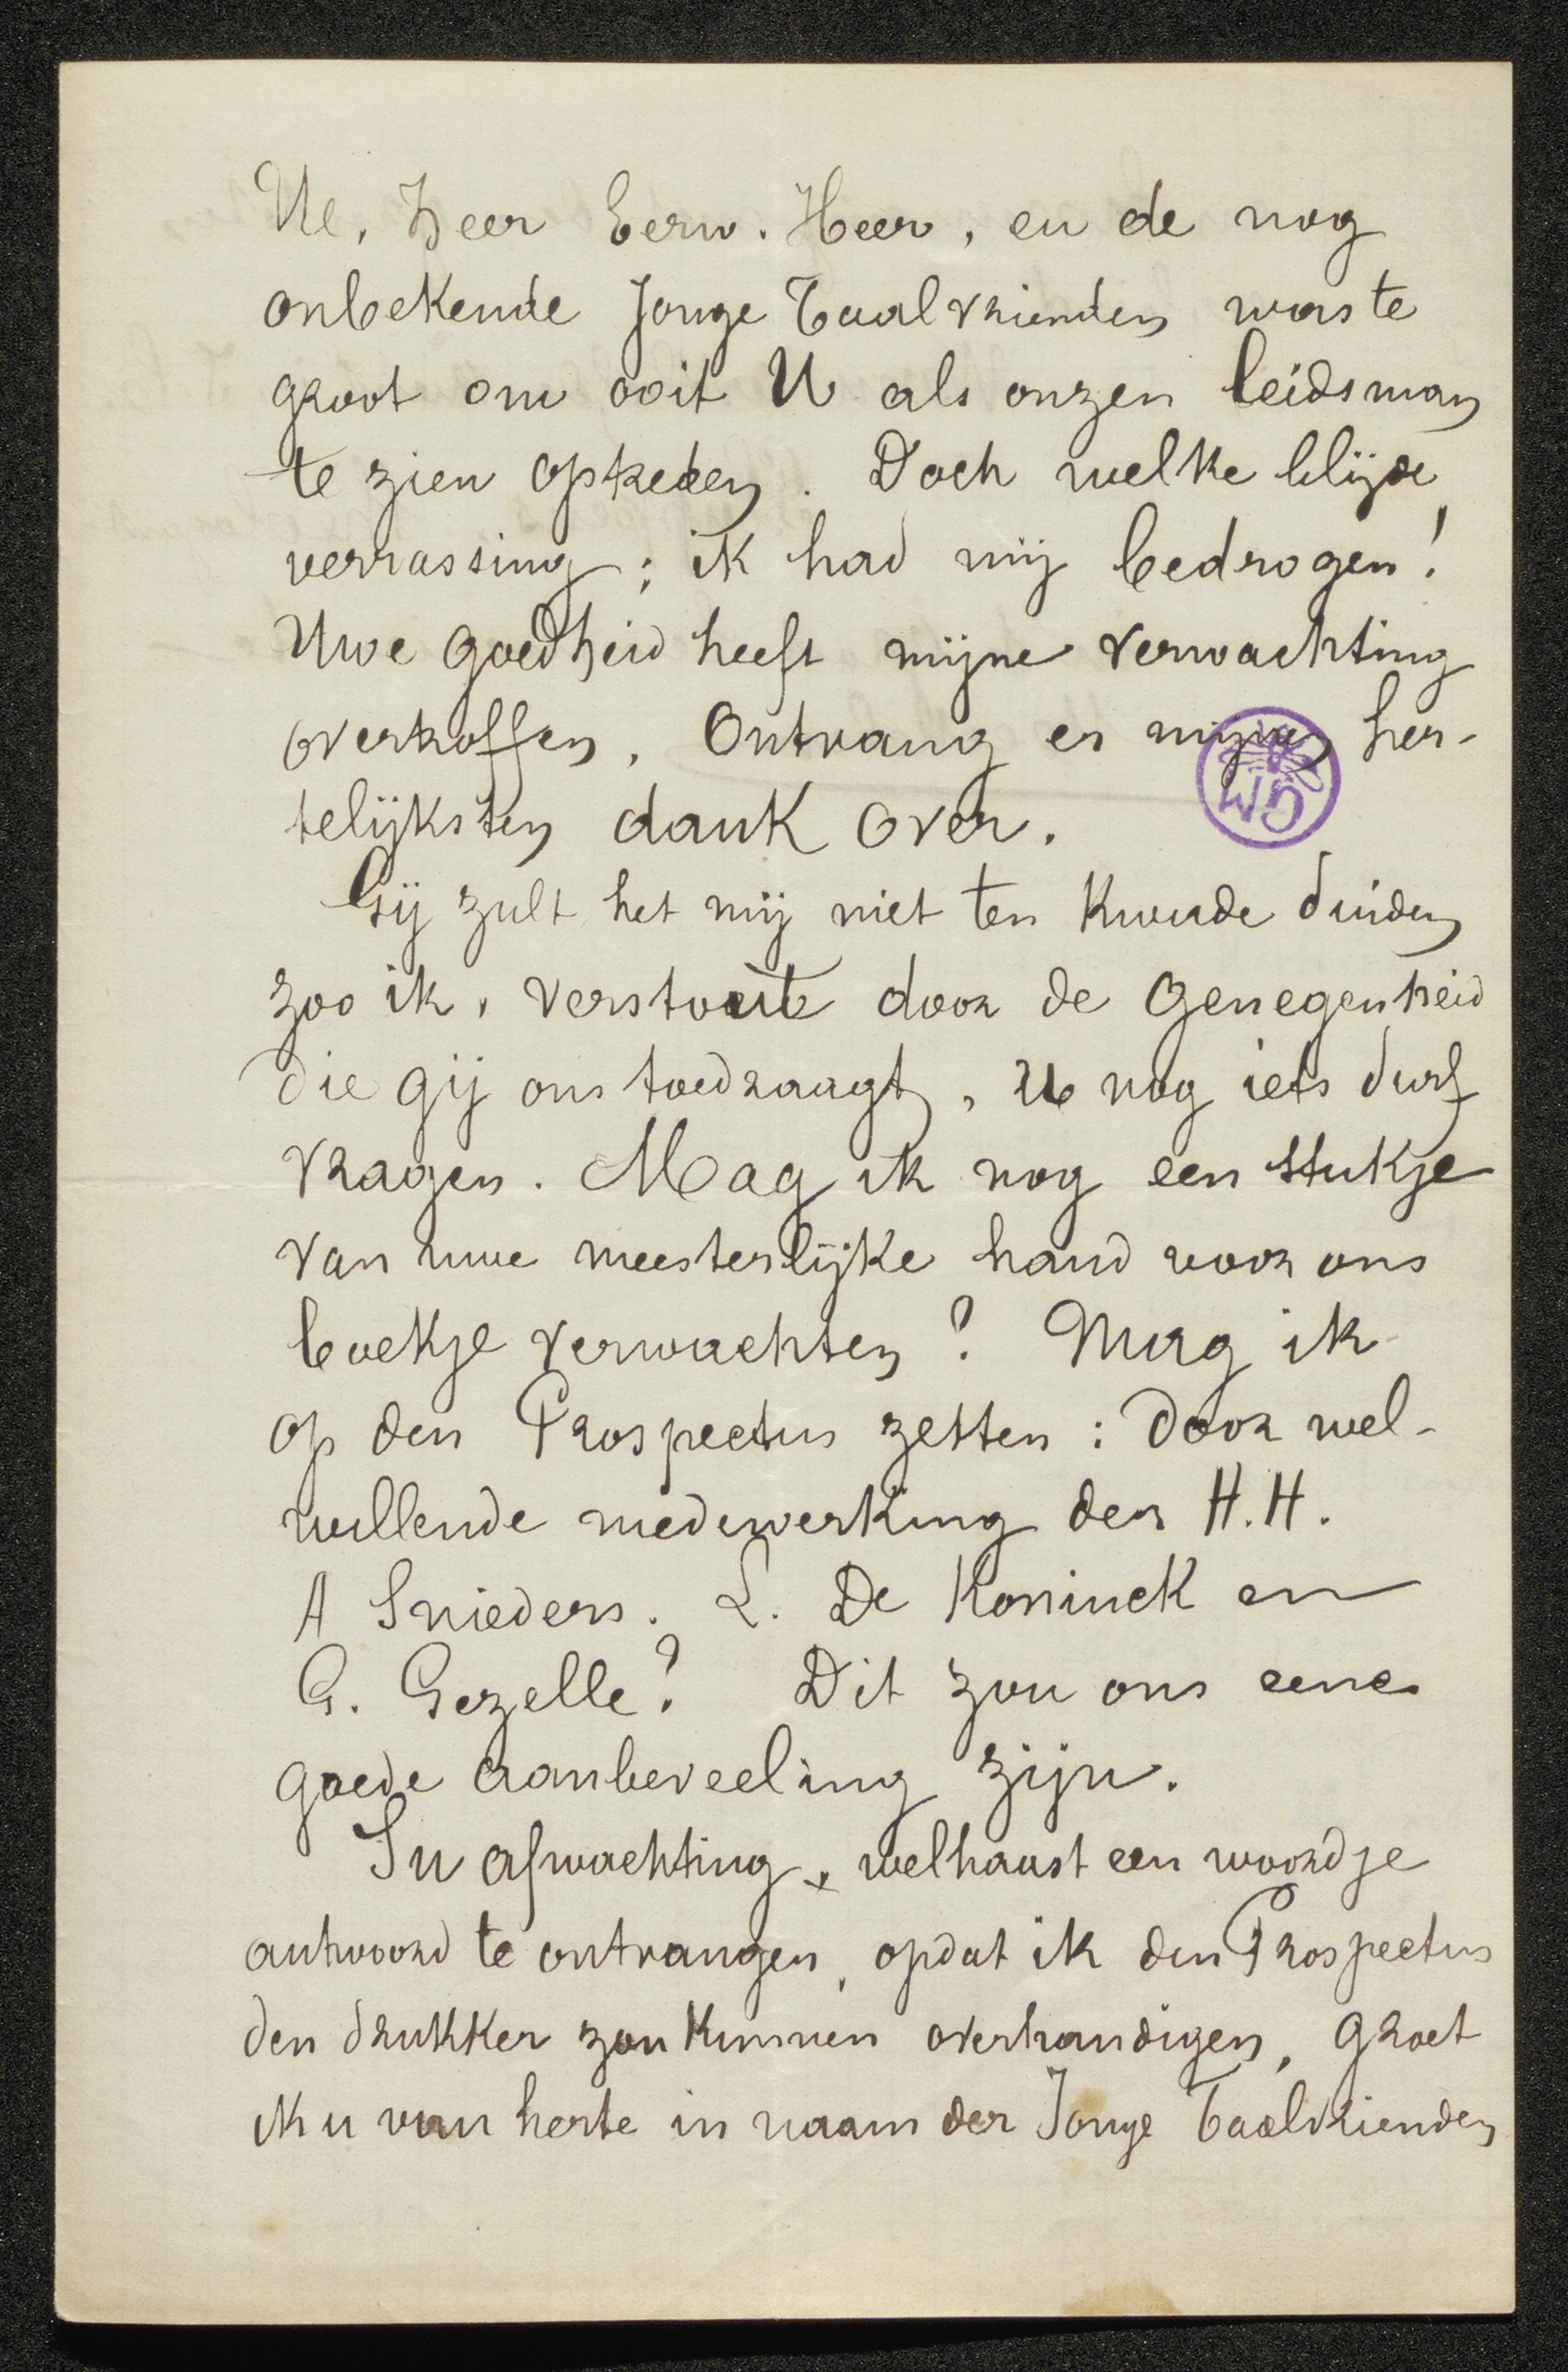 Ue, Zeer Eerw. Heer, en de nog
onbekende Jonge Taalvrienden was te
groot om ooit U als onzen leidsman
te zien optreden. Doch welke blijde
verrassing; ik had mij bedrogen!
Uwe goedheid heeft mijne verwachting
overtroffen. Ontvang er mijnen her-
telijksten dank over.
Gij zult het mij niet ten kwade duiden
zoo ik, verstout door de genegenheid
die gij ons toedraagt, U nog iets durf
vragen. Mag ik nog een stukje
van uwe meesterlijke hand voor ons
boekje verwachten? Mag ik
op den Prospectus zetten: door wel-
willende medewerking der H.H.
A Snieders. L. De Koninck en
G. Gezelle? Dit zou ons eene
goede aanbeveeling zijn.
In afwachting, welhaast een woordje
antwoord te ontvangen, opdat ik den Prospectus
den drukker zou kunnen overhandigen, groet
ik u van herte in naam der Jonge Taalvrienden
GM